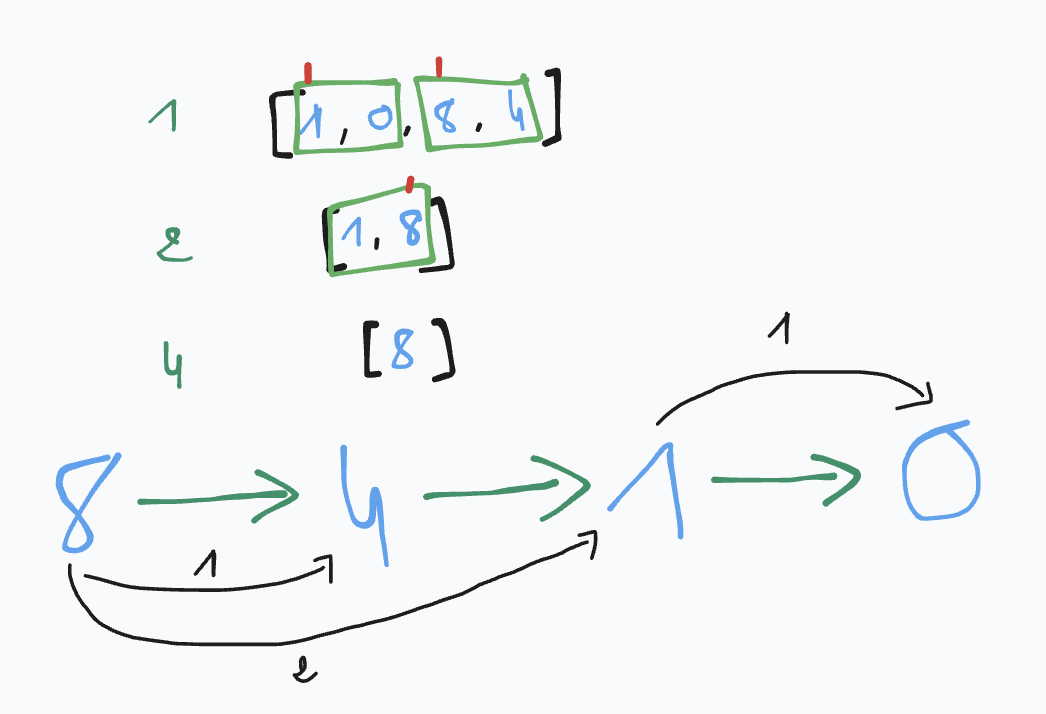 1 [1, 0, 8, 4]
2 [1, 8]
4 [8]
1
8 → 4 → 1 → 0
1
2